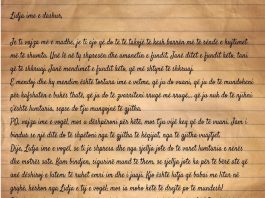 Lidja ime e dashur,
Je ti vajza ime e madhe, je ti ajo që do të të takojë të kesh barrën më të rëndë e kujtimet
më të shumta. Unë lë në ty shpresën dhe amanetin e fundit. Janë ditët e fundit këto, tani
që të shkruaj. Janë mendimet e fundit këto, që më shtyjnë të shkruaj.
E mendoj dhe ky mendim është tortura ime e vetme, që ju do vuani, që ju do të mundoheni
për kafshatën e bukës thatë, që ju do të zvarriteni rrugë më rrugë... që ju nuk do të njihni
ç'është lumturia, sepse do t'ju mungojnë të gjitha.
PO, vajza ime e vogël, mos u dëshpëroni për këto, mos t'ju vijë keq që do të vuani. Jam i
bindur se një ditë do të shpëtoni nga të gjitha të këqijat, nga të gjitha vuajtjet.
Dije, Lidja ime e vogël, se ti je shpresa dhe nga sjellja jote do të varet lumturia e nënës
dhe motrës sate. Kam bindjen, sigurinë mund të them, se sjellja jote ka për të bërë atë që
unë dëshiroj e kështu të ruhet emri im dhe i juaji. Kjo është lutja që babai me litar në
gryhë, kërkon nga Lidja e tij e vogël; mos ia moho këtë të drejtë po të mundesh!